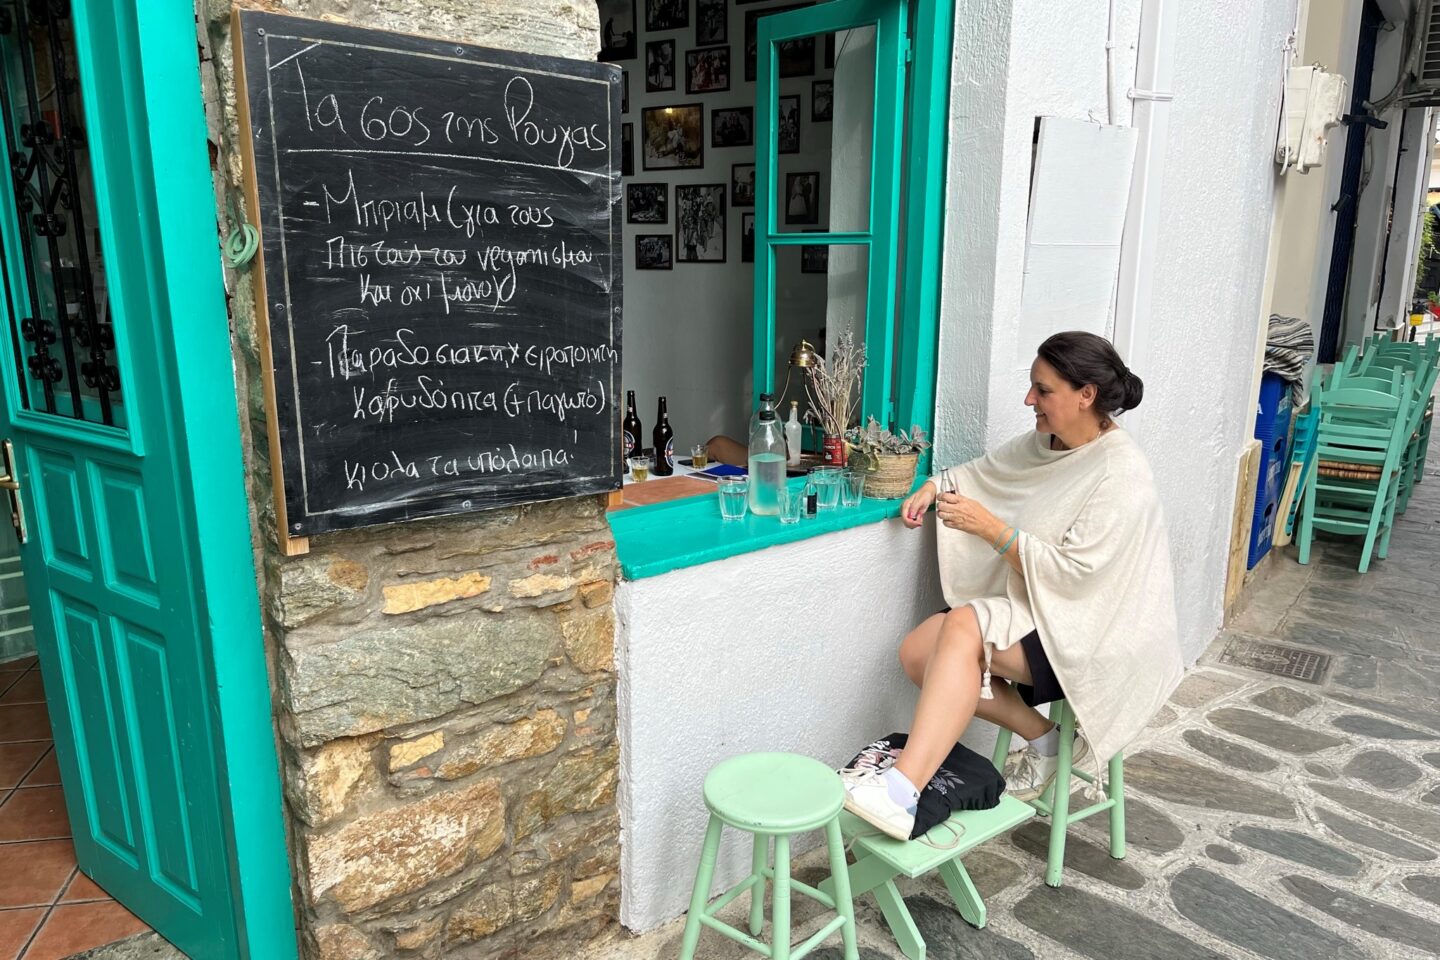 Τα 6ος της Ρούγας
- Μπριαμ (για τους
πιστούς του
και όχι μόνο)
- Παραδοσιακη χειροποιητη
Καρυδόπιτα (+ παγωτό)
κι ολα τα υπόλοιπα!